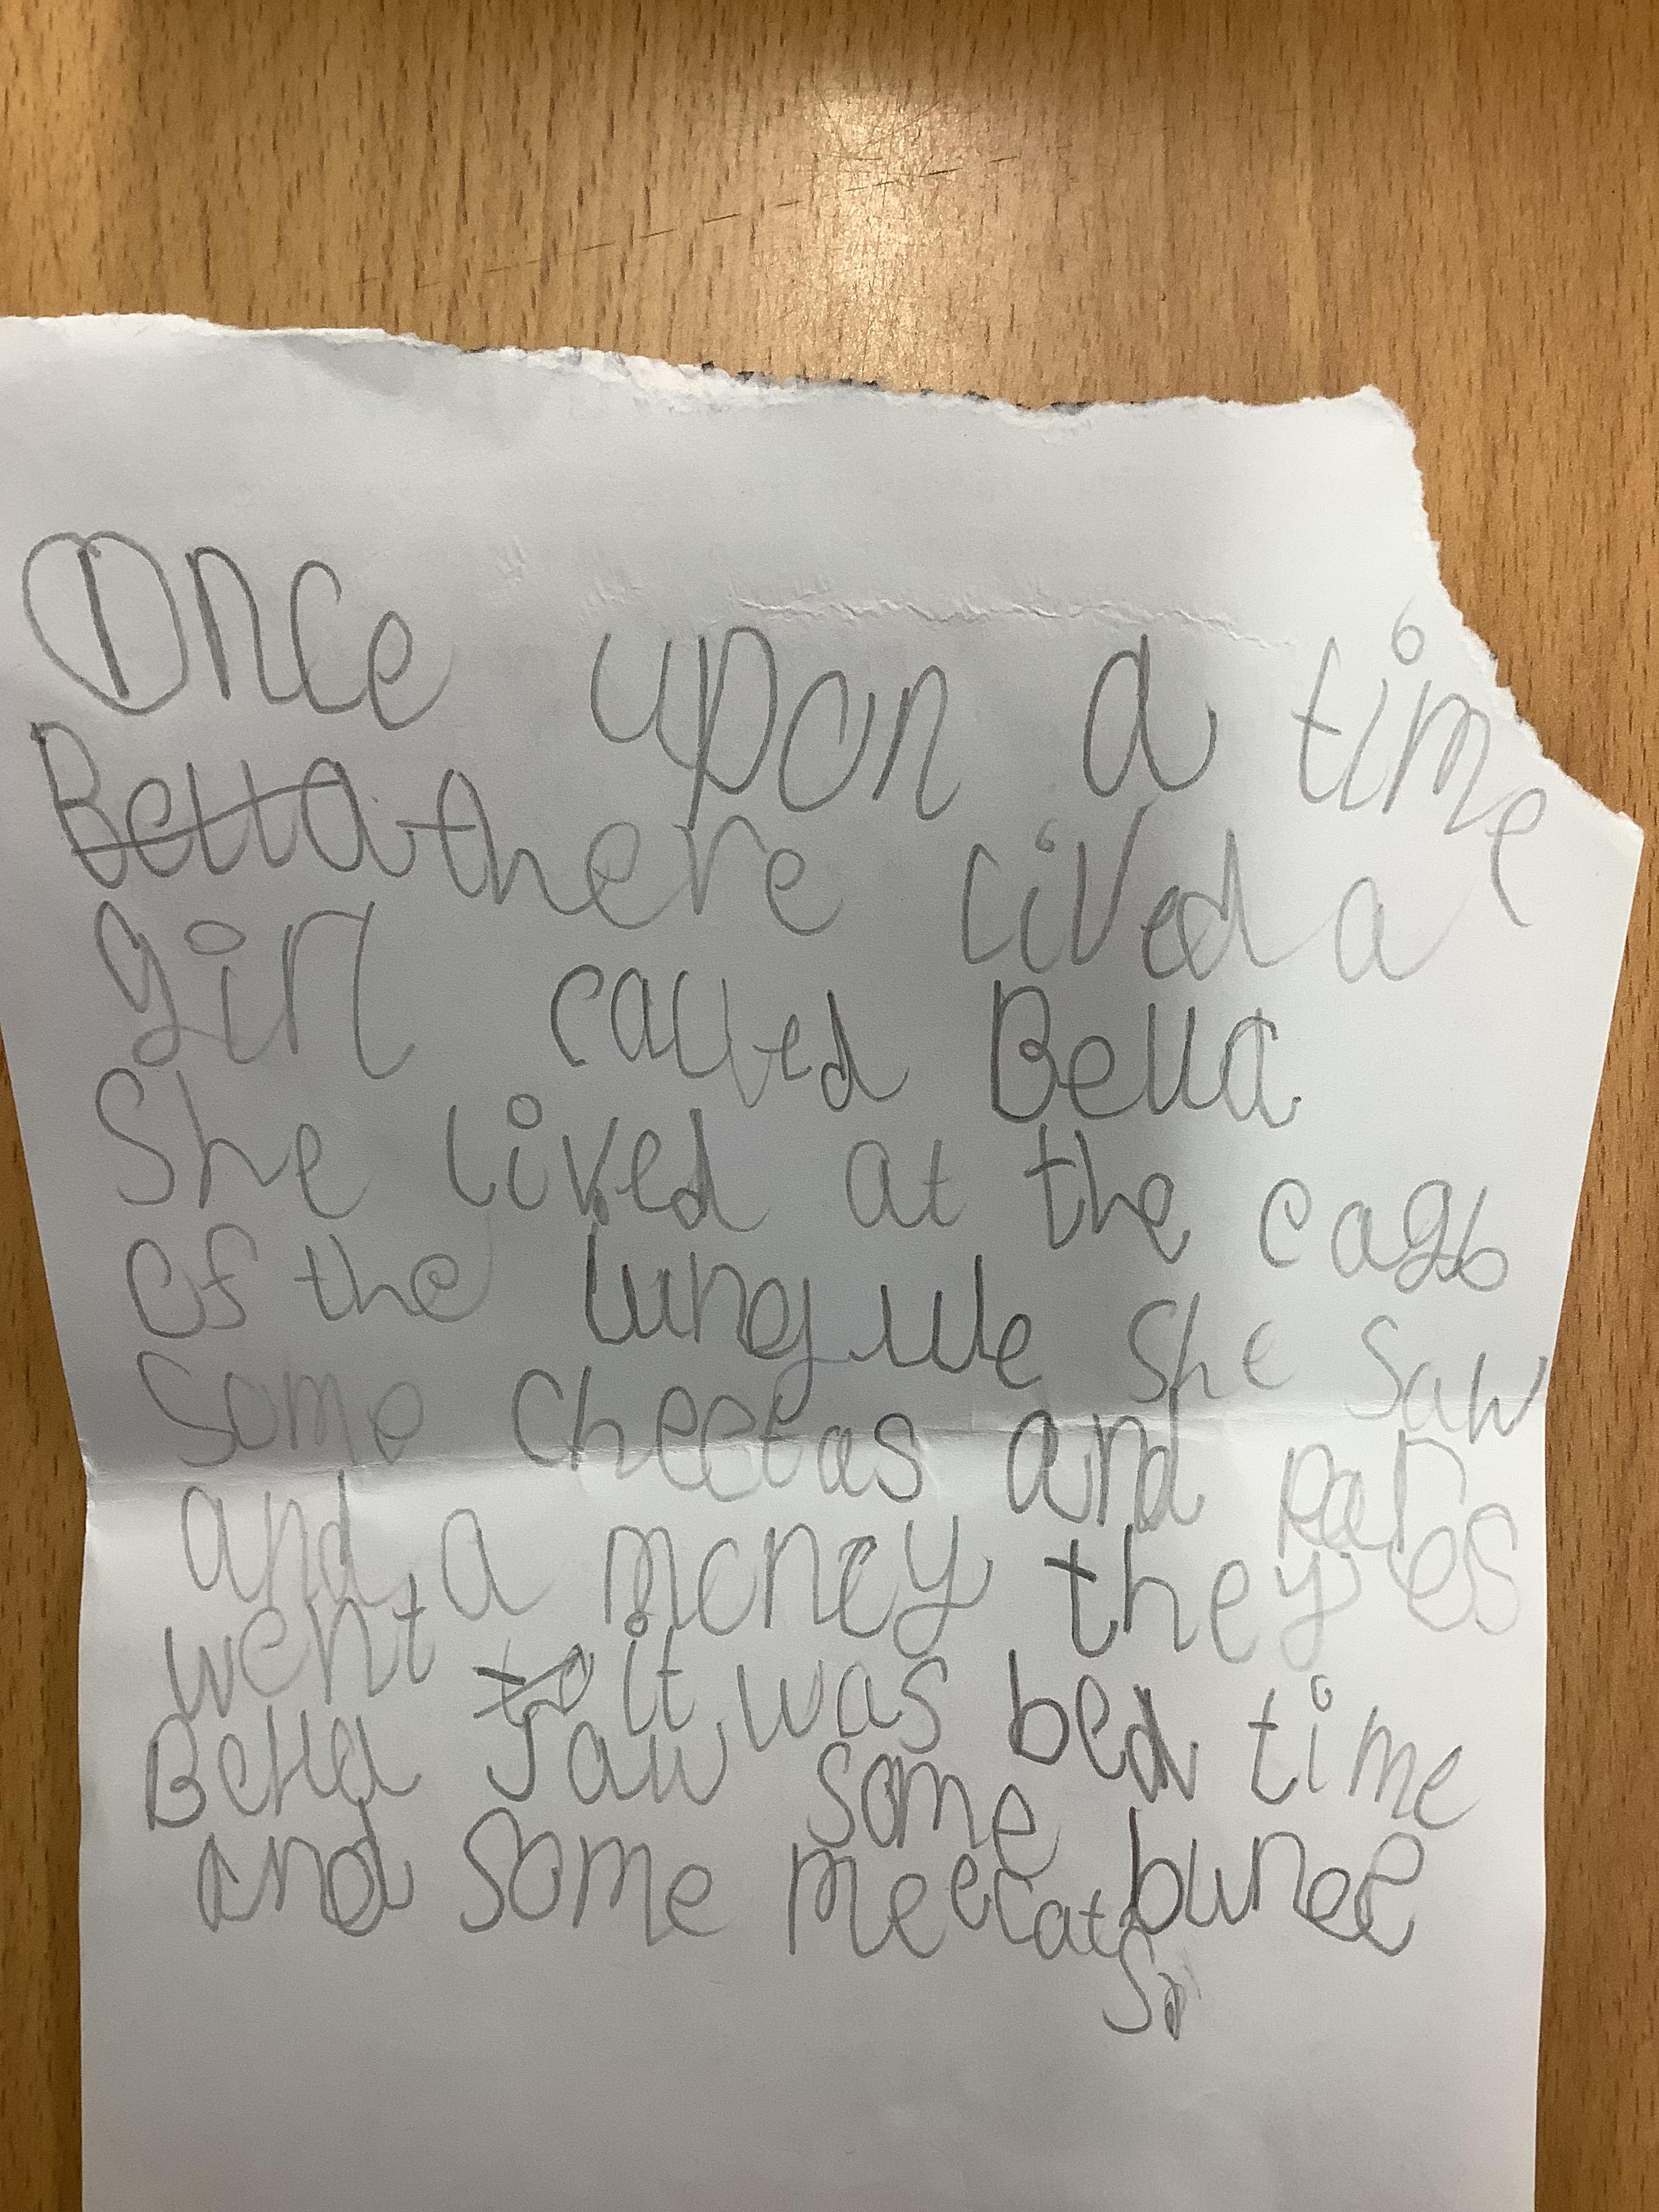 Once upon a time
Bella there lived a
girl called Bella
She lived at the eagb
of the lungule She Saw
Some cheetas and
and a money they
went to it was bed time
Bella Saw some bunee
and some meercats